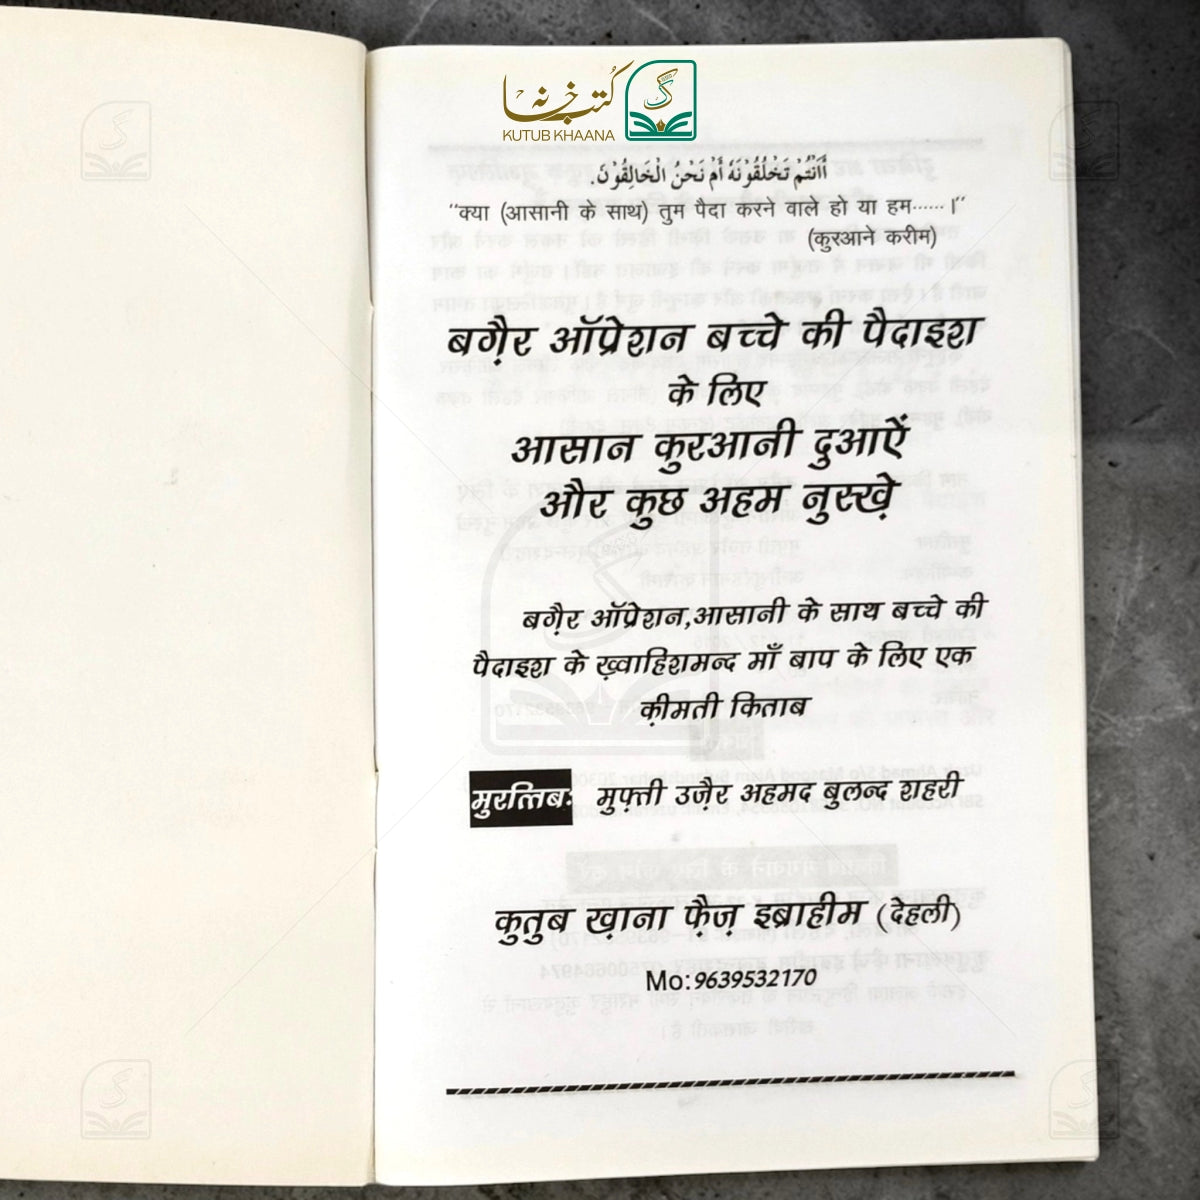 كُتب خانہ
KUTUB KHAANA
أَأَنْتُمْ تَخْلُقُوْنَهٗ أَمْ نَحْنُ الْخَالِقُوْنَ.
"क्या (आसानी के साथ) तुम पैदा करने वाले हो या हम......।"
(कुरआने करीम)
बग़ैर ऑप्रेशन बच्चे की पैदाइश
के लिए
आसान कुरआनी दुआऐं
और कुछ अहम नुस्ख़े
बग़ैर ऑप्रेशन,आसानी के साथ बच्चे की
पैदाइश के ख़्वाहिशमन्द माँ बाप के लिए एक
क़ीमती किताब
मुरत्तिब: मुफ़्ती उज़ैर अहमद बुलन्द शहरी
कुतुब ख़ाना फ़ैज़ इब्राहीम (देहली)
Mo:9639532170